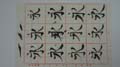 永永永永
永永永永
永永永永